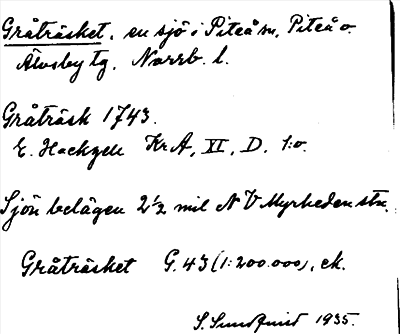 Gråträsket, en sjö i Piteå sn, Piteå o.
Älvsby tg. Norrb. l.
Gråträsk 1743.
E. Hackzell KrA, XI, D. 1:o.
Sjön belägen 2 1/2 mil N V Myrheden stn.
Gråträsket G. 43 (1:200.000), ek.
S. Sundqvist 1935.